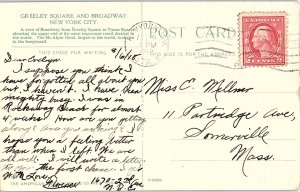 GREELEY SQUARE AND BROADWAY
NEW YORK CITY
A view of Broadway from Greeley Square to Times Square
showing the upper end of the most important retail district in
the world. The McAlpin Hotel, largest in the world, in the
background
THIS SPACE FOR WRITING
POST CARD
THIS SIDE IS FOR THE ADDRESS
9/6/18
Dear Evelyn
I suppose you think I
have forgotten all about you
but I haven't. I have been
mighty busy. I was in
Rockaway Beach for almost
4 weeks. How are you getting
along & are you working? I
hope you are feeling better
than when I left. We are
all well. I will write a letter
the first chance I get
With Love
1470-2nd Ave
N.Y.
Miss E. Mellner
11 Partridge Ave
Somerville
Mass.
2 CENTS 2